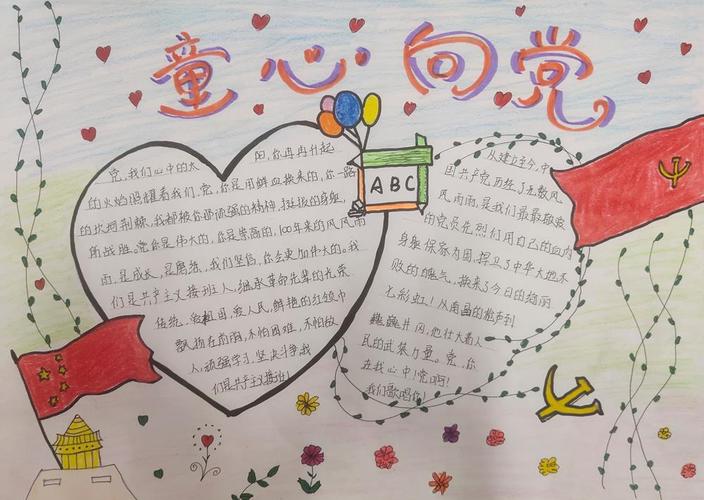 童心向党
党,我们心中的太
阳,你冉冉升起
的火焰照耀着我们,党,你是用鲜血换来的,你一路
的坎坷荆棘,我都被你那顽强的精神,挺拔的身躯,
所战胜。党你是伟大的,你是崇高的,100年来的风风雨
雨,是成长,是磨练,我们坚信,你会更加伟大的。我
们是共产主义接班人,继承革命先辈的光荣
传统,爱祖国,爱人民,鲜艳的红领巾
飘扬在前胸,不怕困难,不怕敌
人,顽强学习,坚决斗争,我
们是共产主义接班
ABC
从建立至今,中
国共产党历经了无数风
风雨雨,是我们最最敬爱
的党员先烈们用自己的血肉
身躯保家为国,捍卫了中华大地不
败的雄气,换来了今日的绚丽
七彩虹!从南昌的枪声到
巍巍井冈,他壮大着人
民的武装力量。党,你
在我心中!党啊!
我们歌唱你!